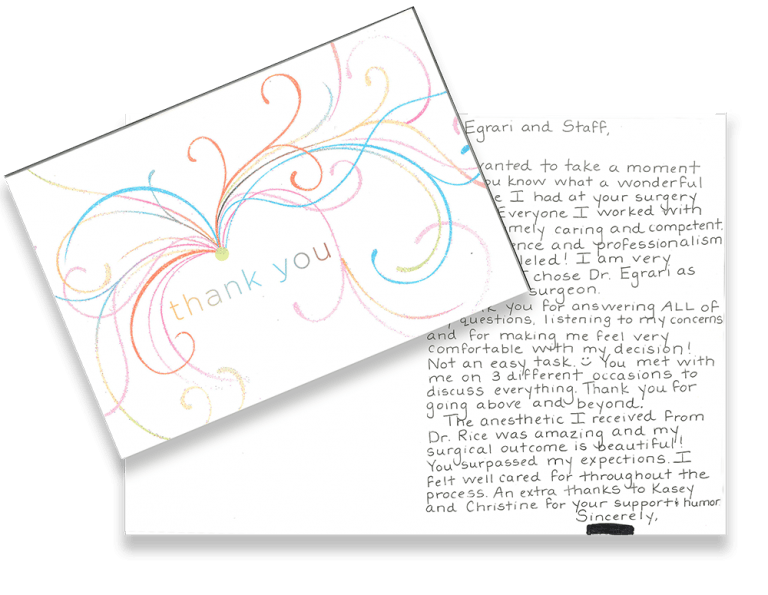 thank you
Egrari and Staff,
wanted to take a moment
you know what a wonderful
I had at your surgery
Everyone I worked with
caring and competent.
and professionalism
! I am very
chose Dr. Egrari as
surgeon.
you for answering ALL of
questions, listening to my concerns
and for making me feel very
comfortable with my decision!
Not an easy task. :) You met with
me on 3 different occasions to
discuss everything. Thank you for
going above and beyond.
The anesthetic I received from
Dr. Rice was amazing and my
surgical outcome is beautiful!!
You surpassed my expections. I
felt well cared for throughout the
process. An extra thanks to Kasey
and Christine for your support & humor.
Sincerely,